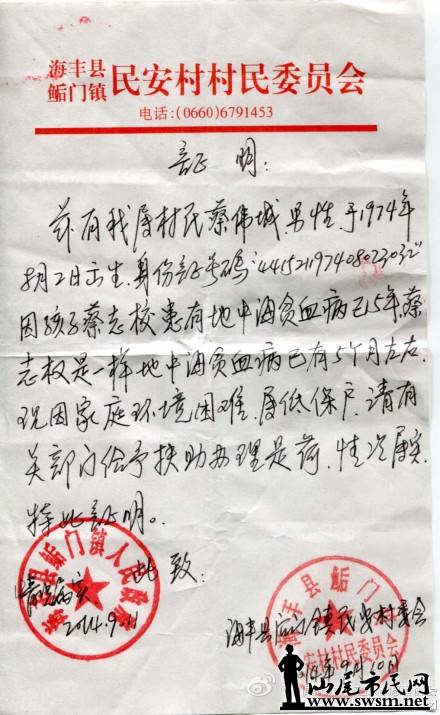 海丰县
鲘门镇 民安村村民委员会
电话:(0660)6791453
証明:
兹有我属村民蔡伟城男性于1974年
8月2日出生.身份証号码:
因孩子蔡志校患有地中海贫血病已5年蔡
志权是一样地中海贫血病已有5个月左右.
现因家庭环境困难.属低保户.请有
关部门给予扶助办理是荷.情况属实
特此証明。
此致:
情况属实
2014.9.11
海丰县鲘门镇人民政府
海丰县后门镇民安村委会
9月10日
海丰县鲘门
民安村村民委员会
山尾市民网
www.swsm.net